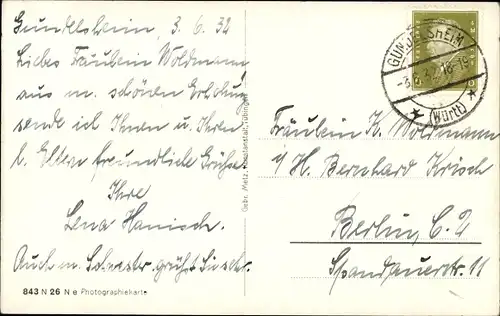 Gundelsheim, 3.6.32
Liebes Fräulein Woldmann
aus m. schönen Erholung
sende ich Ihnen u. Ihren
l. Eltern freundliche Grüße
Ihre
Lena Hanisch.
Auch m. Schwester grüßt
843 N 26 N e Photographiekarte
Gebr. Metz, Tübingen
GUNDELSHEIM
-3.6.32.18-19
(Württ)
Fräulein K. Woldmann
H. Bernhard Krisch
Berlin, C. 2
Spandauerstr. 11